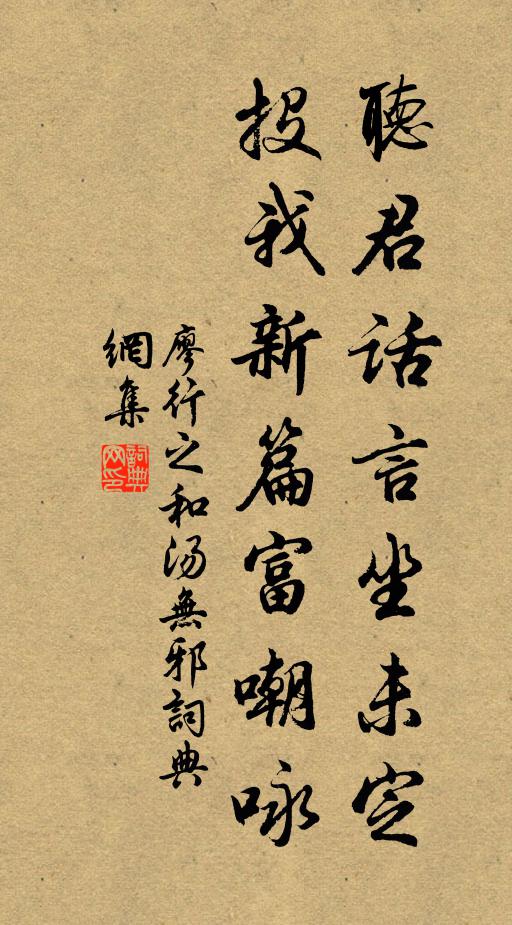 聽君話言坐未定
投我新篇富嘲咏
廖行之和湯無邪詞典
網集
詞典網印